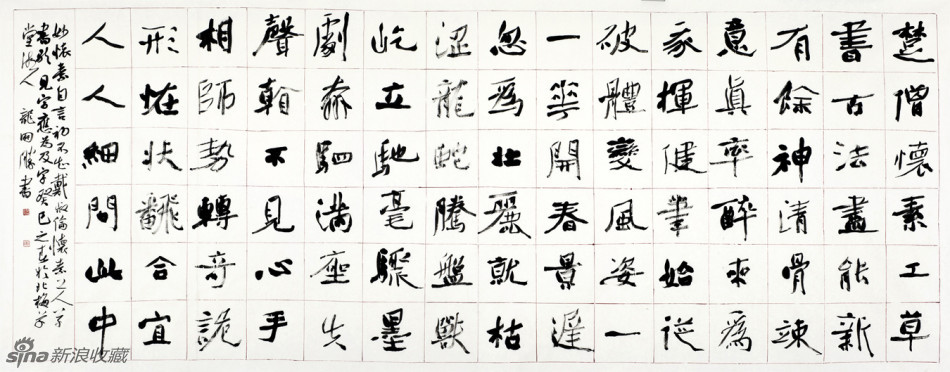 楚僧懷素工草
書古法盡能新
有餘神清骨竦
意真率醉來為
我揮健筆始從
破體變風姿一
一華開春景遲
忽為壯麗就枯
澀龍蛇騰盤獸
屹立馳毫驟墨
劇奔駟滿座失
聲不見心手
相師勢轉奇詭
形恠狀飜合宜
人人細問此中
妙懷素自言初不知戴叔倫懷素上人草
書歌見字應為及字癸巳之夏於北梅草
堂人龍開勝書
sina新浪收藏